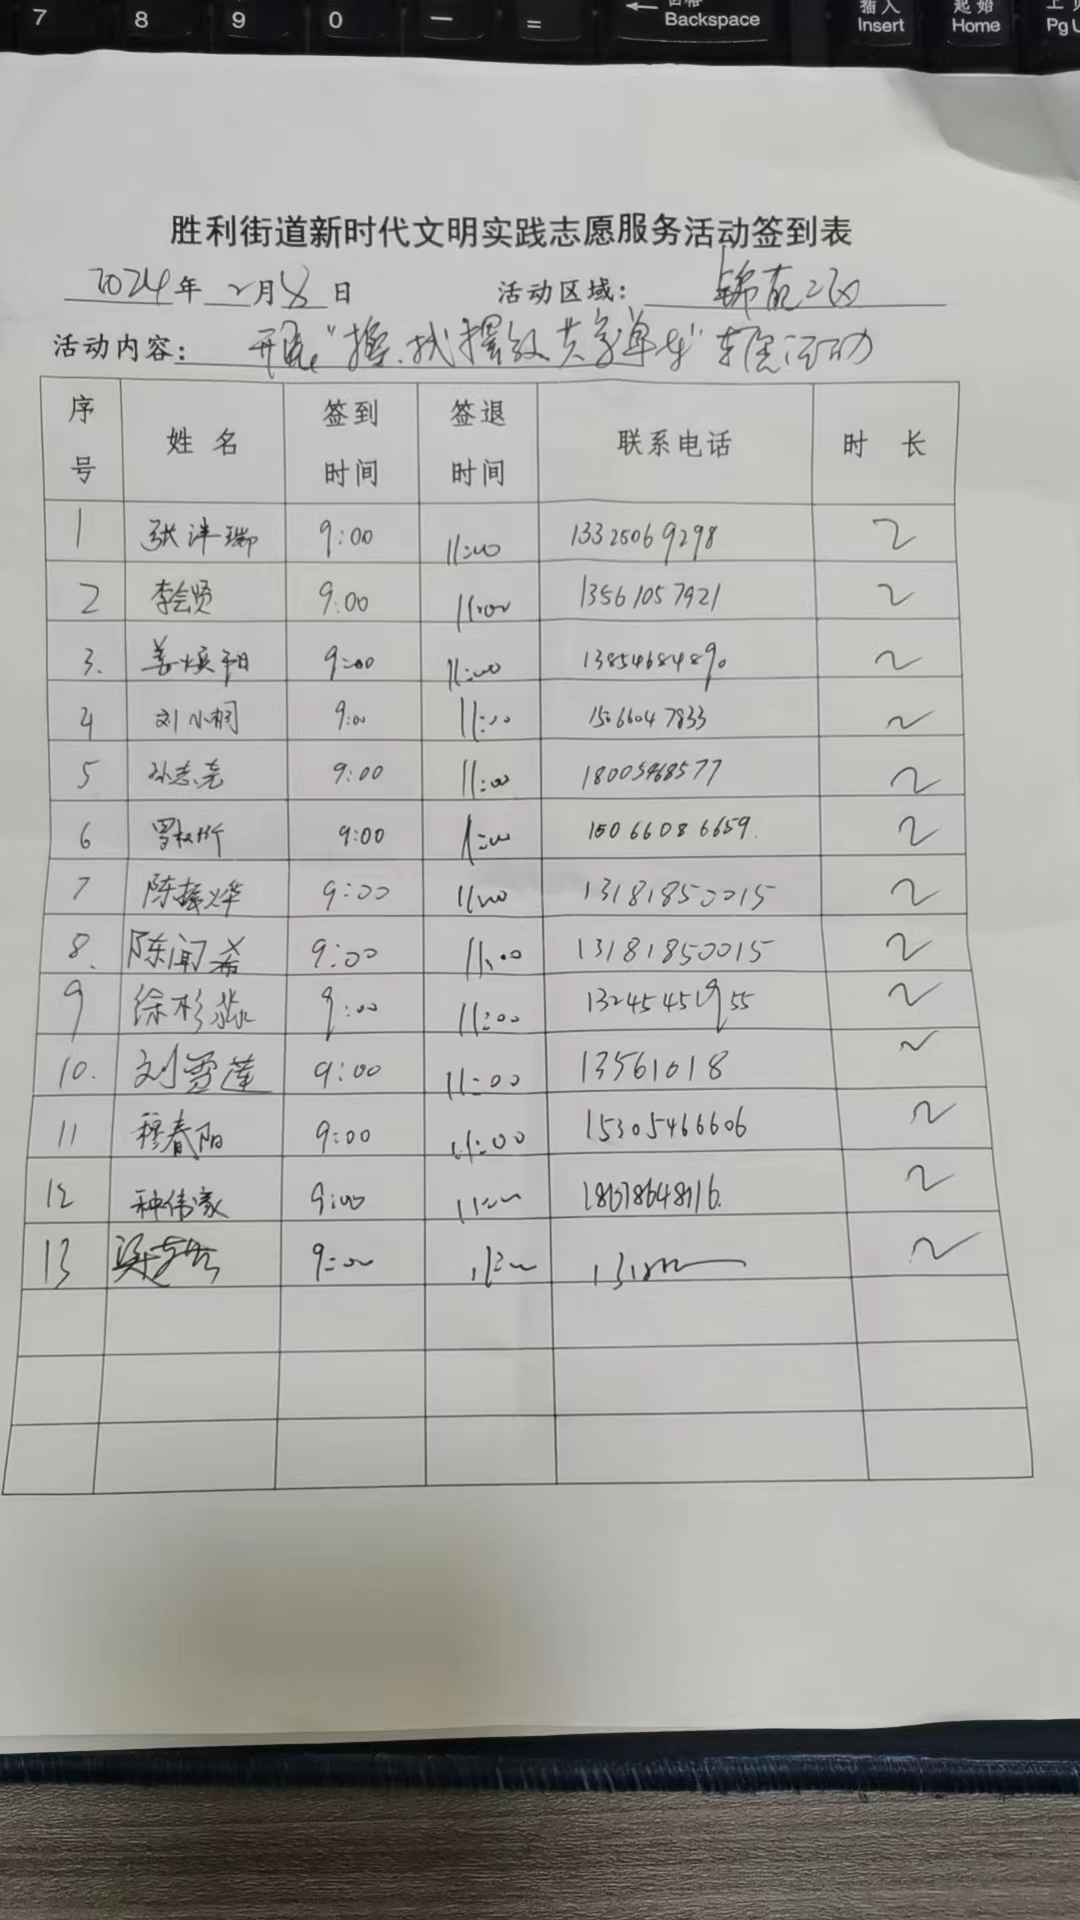 7 8 9 0 — = ← Backspace 插入 Insert 起始 Home Pg U
胜利街道新时代文明实践志愿服务活动签到表
2024年2月8日 活动区域:
活动内容: 摆放共享单车 活动
序号 姓名 签到时间 签退时间 联系电话 时长
1 张沣瑞 9:00 11:00 13325069298 2
2 李会贤 9:00 11:00 13561057921 2
3. 姜焕阳 9:00 11:00 13854684890 2
4 刘小桐 9:00 11:00 15066047833 2
5 孙志尧 9:00 11:00 18005468577 2
6 9:00 11:00 15066086659. 2
7 9:00 11:00 13181850015 2
8. 陈闻希 9:00 11:00 13181850015 2
9 徐杉淼 9:00 11:00 13245451955 2
10. 刘雪莲 9:00 11:00 13561018 2
11 穆春阳 9:00 11:00 15305466606 2
12 种伟家 9:00 11:00 2
13 9:00 11:00 2